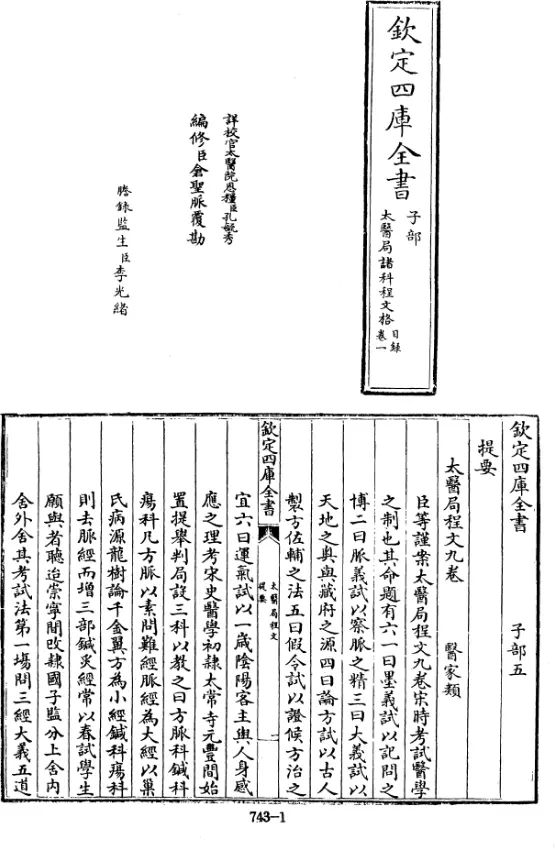 欽定四庫全書
子部
太醫局諸科程文格
目録
卷一
詳校官太醫院恩糧臣孔毓秀
編修臣倉聖脈覆勘
謄録監生臣李光緒
欽定四庫全書
子部五
提要
醫家類
太醫局程文九卷
臣等謹案太醫局程文九卷宋時考試醫學
之制也其命題有六一曰墨義試以記問之
博二曰脈義試以察脈之精三曰大義試以
天地之奥與藏府之源四曰論方試以古人
製方佐輔之法五曰假令試以證候方治之
欽定四庫全書
太醫局程文
提要
一
宜六曰運氣試以一歲陰陽客主與人身感
應之理考宋史醫學初隸太常寺元豐間始
置提舉判局設三科以教之曰方脈科鍼科
瘍科凡方脈以素問難經脈經為大經以巢
氏病源龍樹論千金翼方為小經鍼科瘍科
則去脈經而增三部鍼灸經常以春試學生
願與者聽造崇寧間改隸國子監分上舍内
舍外舍其考試法第一場問三經大義五道
743-1